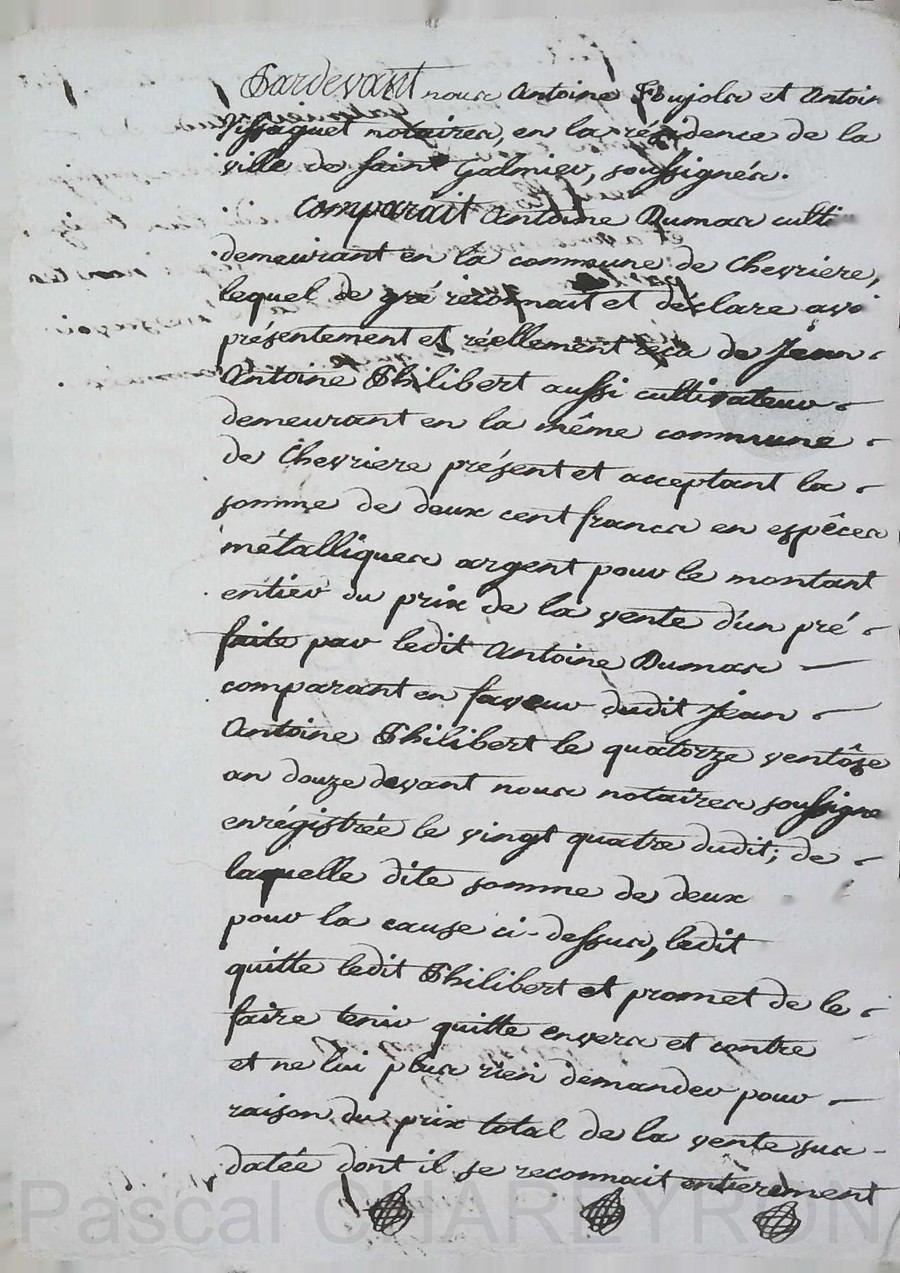 Pardevant nous Antoine Pujols et Antoin
Vissaguet notaires, en la résidence de la
ville de saint Galmier, soussignés.
Comparait Antoine Dumas culti
demeurant en la commune de Chevriere,
lequel de gré reconnait et déclare avoi
présentement et réellement reçu de Jean
Antoine Philibert aussi cultivateur
demeurant en la même commune
de Chevriere présent et acceptant la
somme de deux cent francs en espêces
métalliques argent pour le montant
entier du prix de la vente d'un pré
faite par ledit Antoine Dumas
comparant en faveur dudit Jean
Antoine Philibert le quatorze ventôse
an douze devant nous notaires soussigne
enrégistrée le vingt quatre dudit; de
laquelle dite somme de deux
pour la cause ci-dessus, ledit
quitte ledit Philibert et promet de le
faire tenir quitte envers et contre
et ne lui plus rien demander pour
raison du prix total de la vente sus-
datée dont il se reconnait entierement
Pascal CHARLEYRON